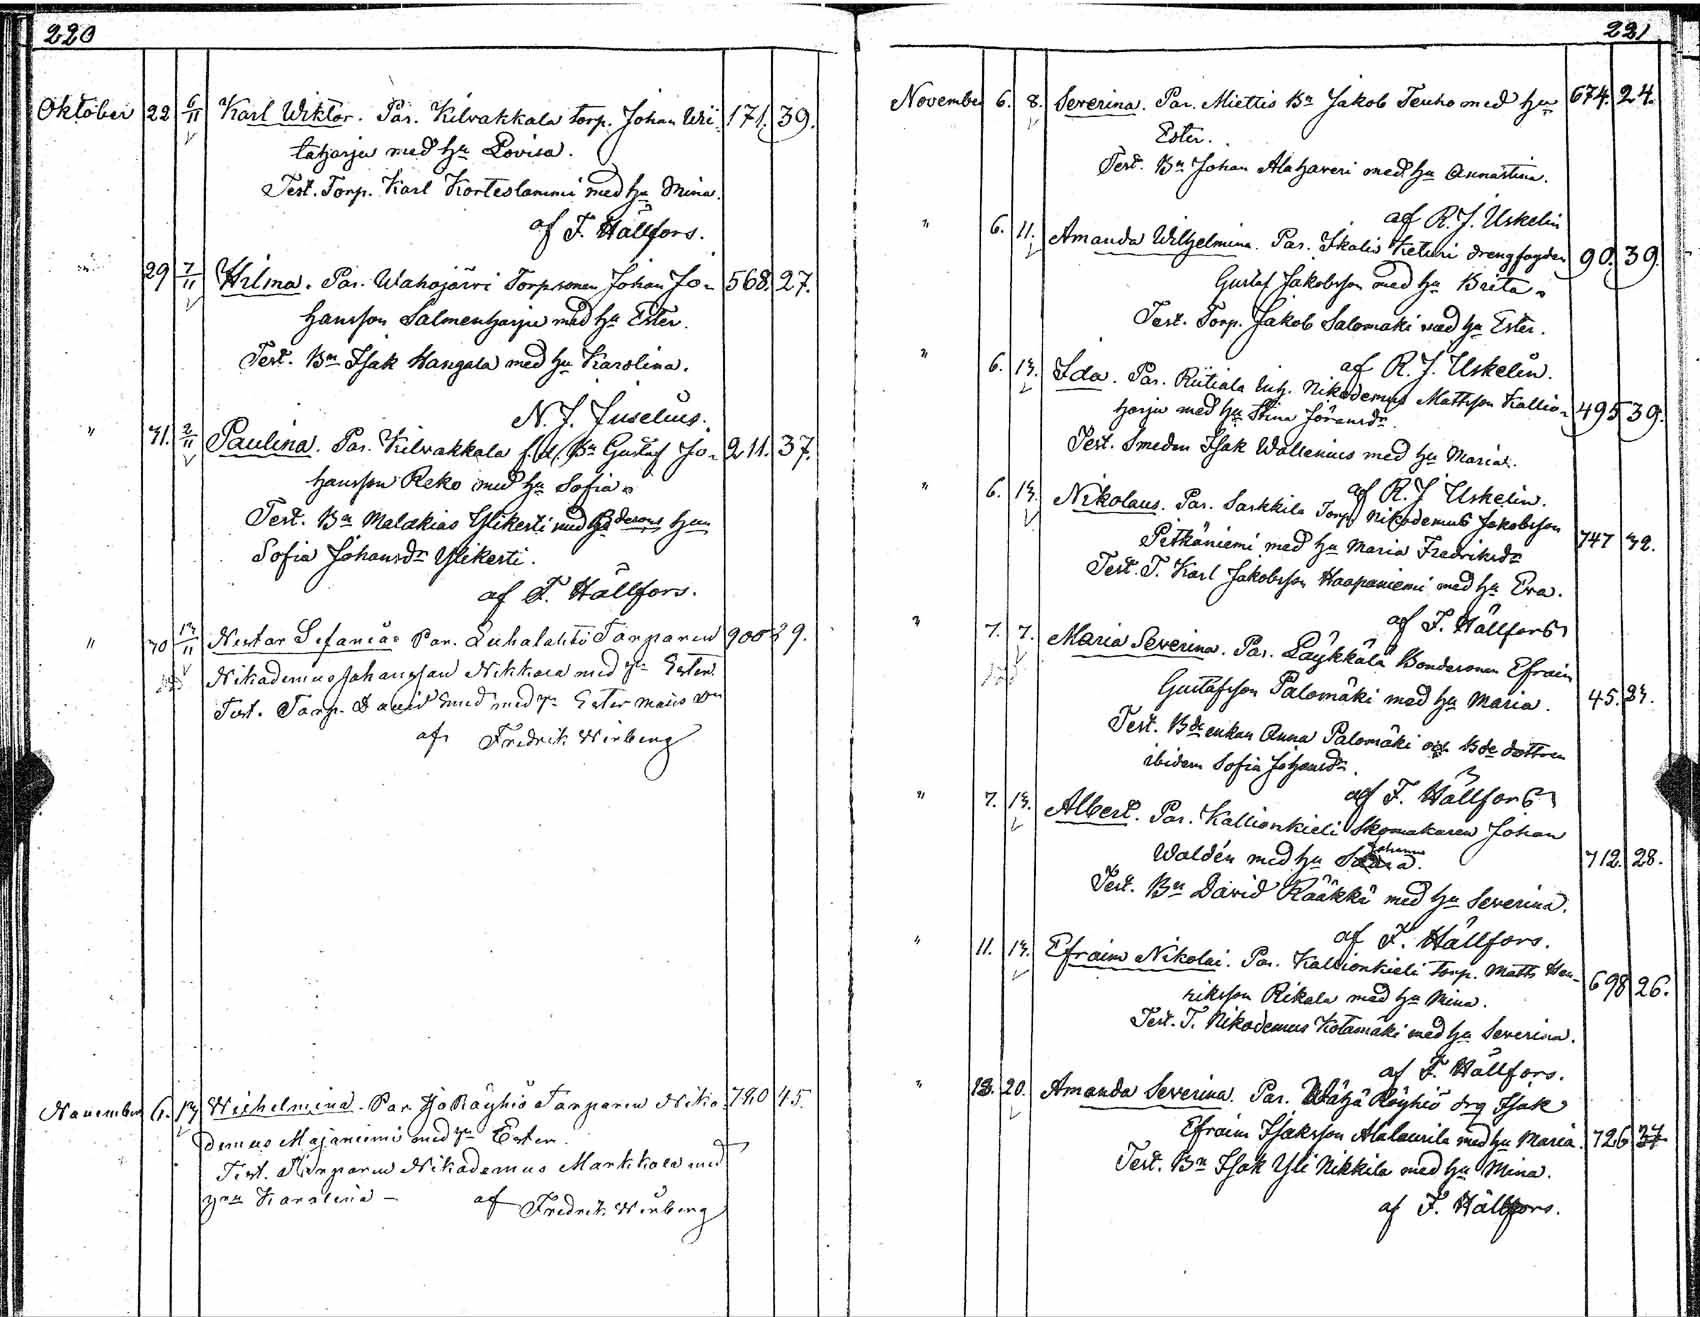 220
Oktober 22 6/11 Karl Wiktor. Par. Kilvakkala torp. Johan Wii- 171. 39.
taharju med hu Lovisa.
Test. Torp. Karl Korteslammi med hu Mina.
af F. Hällfors.
29 7/11 Hilma. Par. Wahojärvi Torpsonen Johan Jo- 568. 27.
hansson Salmenharju med hu Ester.
Test. Bn Isak Hangala med hu Karolina.
N. J. Juselius.
" 31. 2/11 Paulina. Par. Kilvakkala f.d. Bn Gustaf Jo- 211. 37.
hansson Reko med hu Sofia.
Test. Bn Malakias Ylikerti med hu
Sofia Johansdr Ylikerti.
af F. Hällfors.
" 30 13/11 Nestor Sefanias Par. Luhalahti Torparen 900 29.
Nikademus Johansson Nikkola med hu Ester.
Test. Torp. David med hu Ester
af Fredrik Wirberg
November 6. 13 Wilhelmina. Par. Röyhiö Torparen Niko- 720 45.
demus Majaniemi med hu Ester.
Test. Torparen Nikademus Markkola med
hru Karolina – af Fredrik Wirberg
221
November 6. 8. Severina. Par. Miettis Bn Jakob Tenho med hu 674. 24.
Ester.
Test. Bn Johan Alahaveri med hu Annastina.
af R. J. Uskelin
" 6. 11. Amanda Wilhelmina. Par. Ikalis Keturi drengfogden 90. 39.
Gustaf Jakobsson med hu Brita.
Test. Torp. Jakob Salomäki med hu Ester.
af R. J. Uskelin.
" 6. 13. Ida. Par. Riitiala Inh. Nikodemus Mattsson Kallio- 495 39.
harju med hu Stina Göransdr
Test. Smeden Isak Wallenius med hu Maria.
af R. J. Uskelin.
" 6. 13. Nikolaus. Par. Sarkkila Torp. Nikodemus Jakobsson 747 32.
Pitkäniemi med hu Maria Fredriksdr
Test. T. Karl Jakobsson Haapaniemi med hu Eva.
af F. Hällfors
" 7. 7. Maria Severina. Par. Läykkälä Bondesonen Efraim
Gustafsson Palomäki med hu Maria. 45. 23.
Test. Bde enkan Anna Palomäki och Bde dottren
ibidem Sofia Johansdr.
af F. Hällfors
" 7. 13. Albert. Par. Kallionkieli Skomakaren Johan
Waldén med hu Johanna. 712. 28.
Test. Bn David Rääkki med hu Severina.
af F. Hällfors.
" 11. 13. Efraim Nikolai. Par. Kallionkieli Torp. Matts Hen- 698 26.
riksson Rikala med hu Mina.
Test. T. Nikodemus Kotamäki med hu Severina.
af F. Hällfors.
" 13. 20. Amanda Severina. Par. Wähä Röyhiö drg Isak
Efraim Isaksson Alalaurila med hu Maria. 726
Test. Bn Isak Yli Nikkilä med hu Mina.
af F. Hällfors.